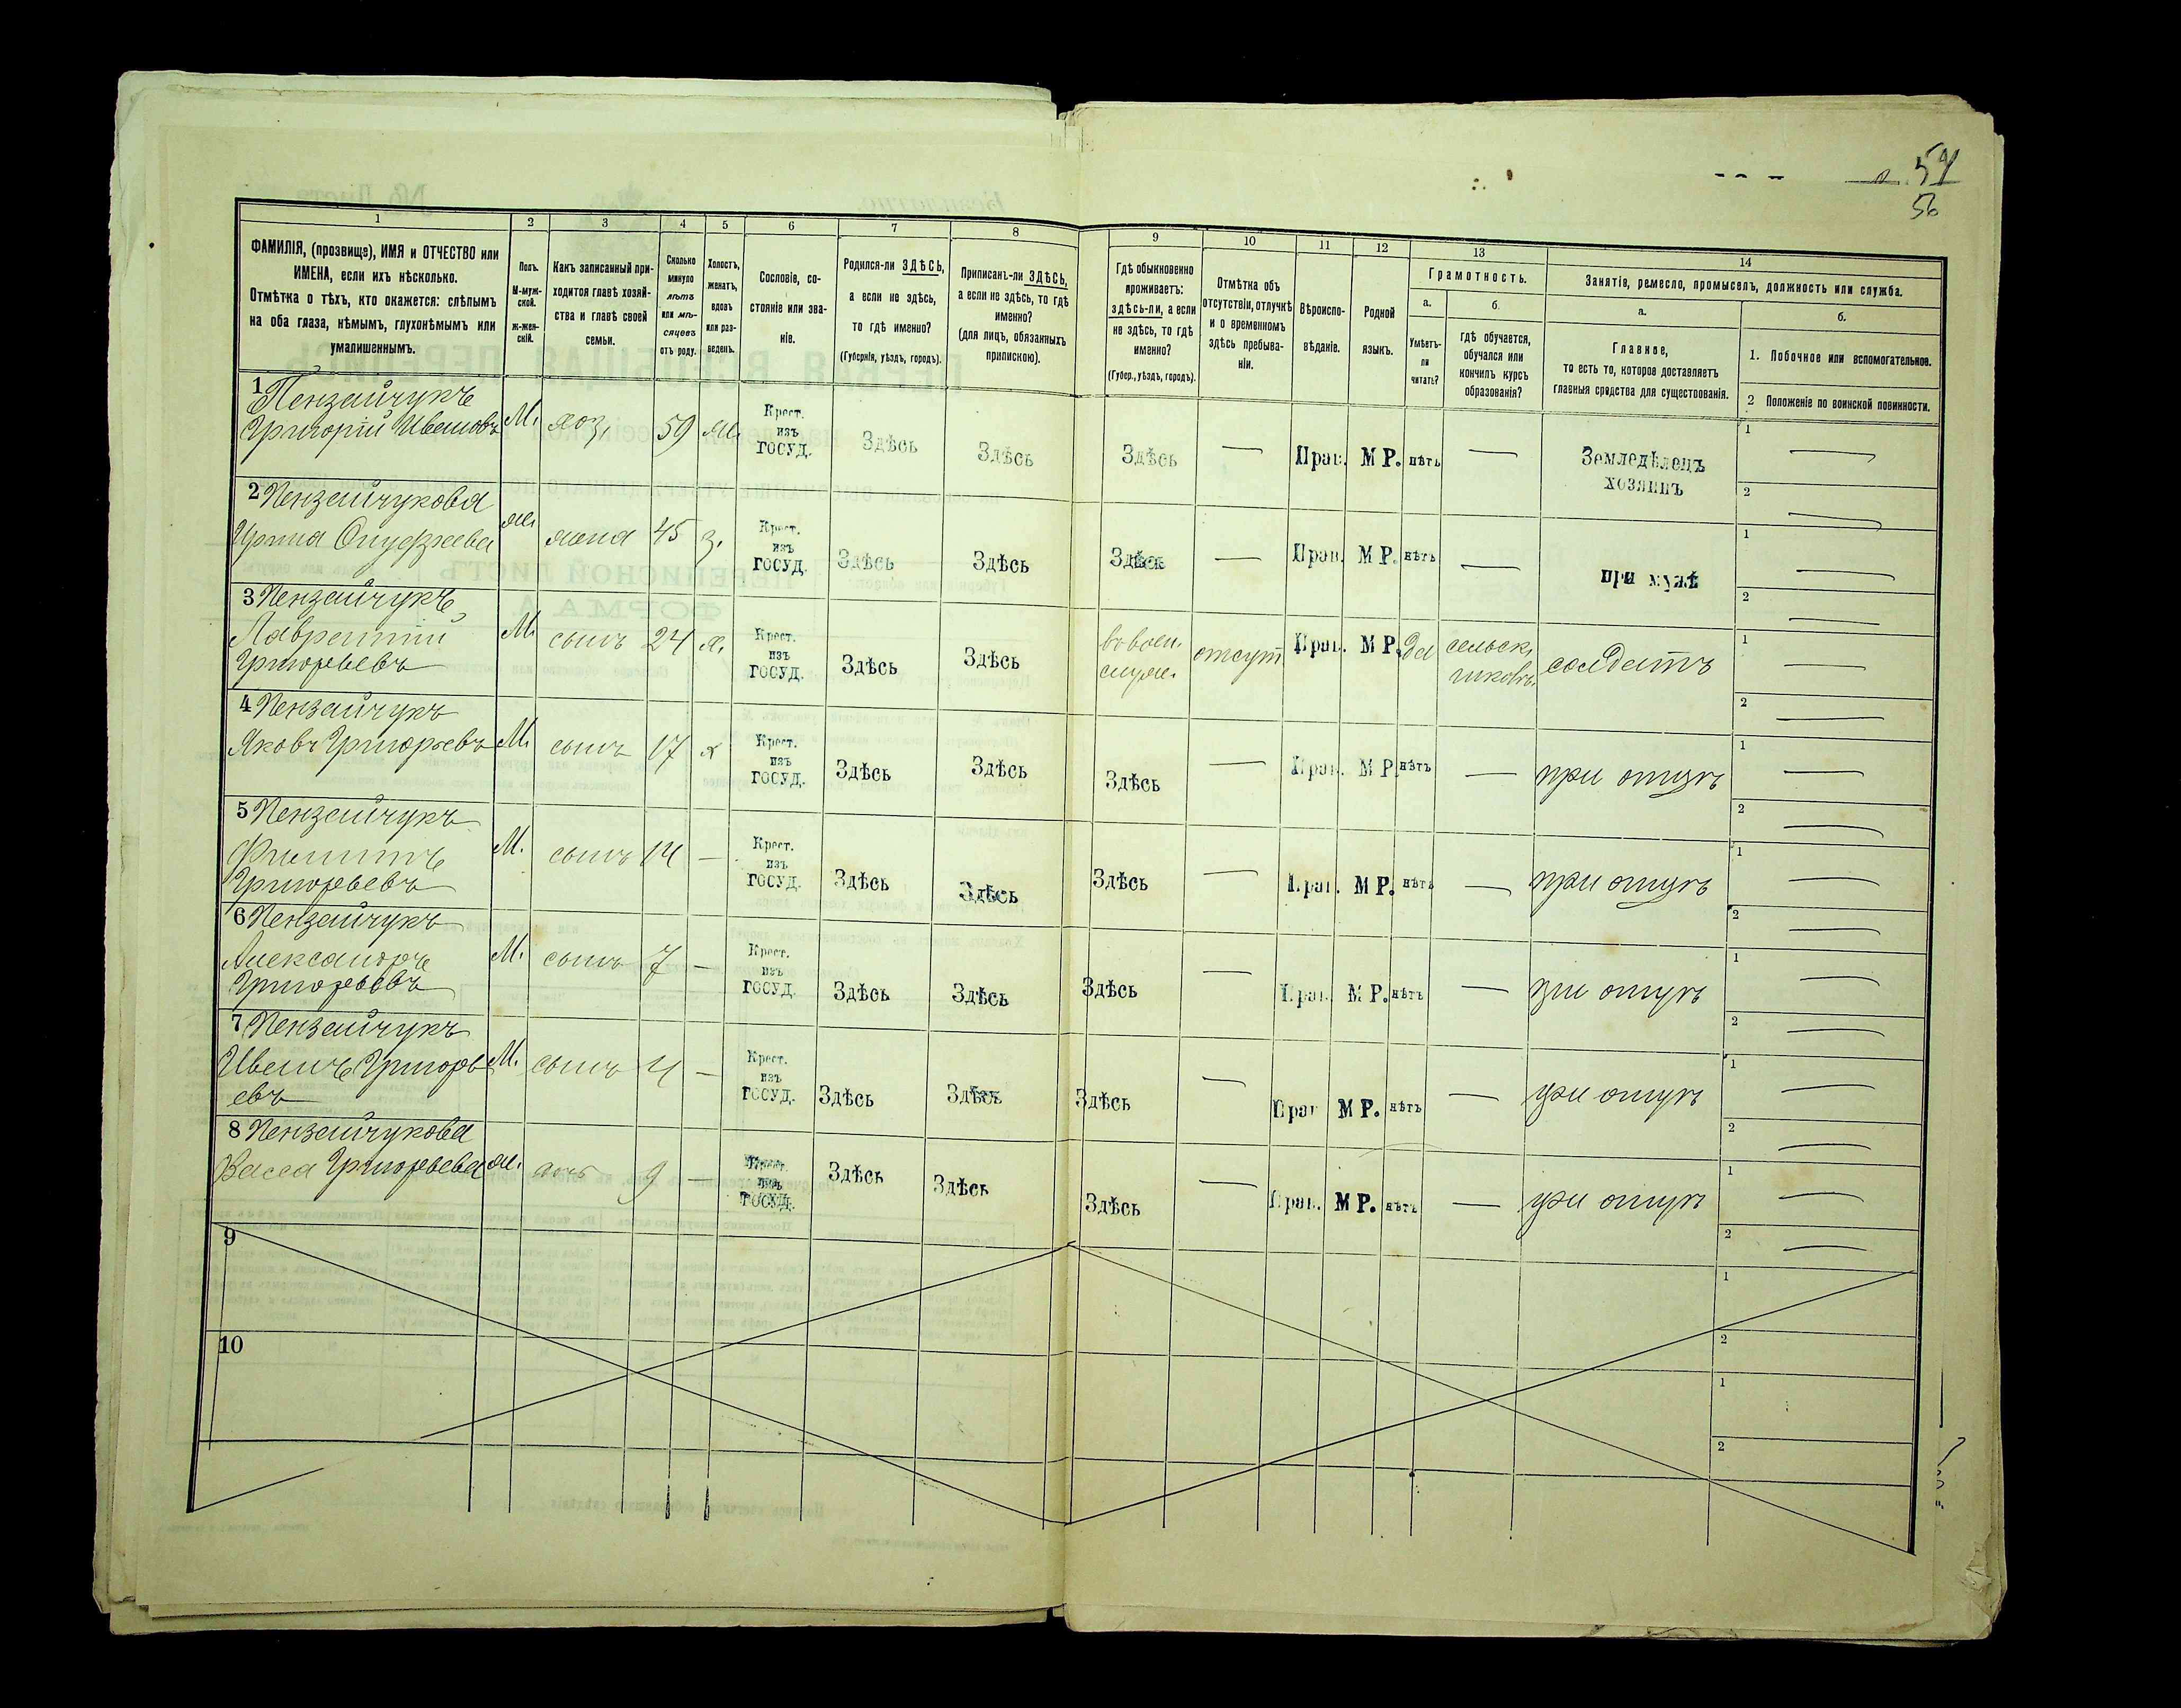 54
56
1 2 3 4 5 6 7 8 9 10 11 12 13 14
ФАМИЛІЯ, (прозвище), ИМЯ и ОТЧЕСТВО или
ИМЕНА, если ихъ нѣсколько.
Отмѣтка о тѣхъ, кто окажется: слѣпымъ
на оба глаза, нѣмымъ, глухонѣмымъ или
умалишеннымъ.
Полъ.
М-муж-
ской.
ж-жен-
скій.
Какъ записанный при-
ходится главѣ хозяй-
ства и главѣ своей
семьи.
Сколько
минуло
лѣтъ
или мѣ-
сяцевъ
отъ роду.
Холостъ,
женатъ,
вдовъ
или раз-
веденъ.
Сословіе, со-
стояніе или зва-
ніе.
Родился-ли ЗДѢСЬ,
а если не здѣсь,
то гдѣ именно?
(Губернія, уѣздъ, городъ).
Приписанъ-ли ЗДѢСЬ,
а если не здѣсь, то гдѣ
именно?
(для лицъ, обязанныхъ
припискою).
Гдѣ обыкновенно
проживаетъ:
здѣсь-ли, а если
не здѣсь, то гдѣ
именно?
(Губер., уѣздъ, городъ).
Отмѣтка объ
отсутствіи, отлучкѣ
и о временномъ
здѣсь пребыва-
ніи.
Вѣроиспо-
вѣданіе.
Родной
языкъ.
Грамотность.
а.
Умѣетъ-
ли
читать?
б.
гдѣ обучается,
обучался или
кончилъ курсъ
образованія?
Занятія, ремесло, промыселъ, должность или служба.
а.
Главное,
то есть то, которое доставляетъ
главныя средства для существованія.
б.
1. Побочное или вспомогательное.
2 Положеніе по воинской повинности.
1 Пензайчукъ
Григорій Ивановъ М. хоз. 59 ж. Крест. изъ ГОСУД. Здѣсь Здѣсь Здѣсь — Прав. М Р. нѣтъ — Земледѣлецъ хозяинъ 1 — 2 —
2 Пензайчукова
Ирина Онуфріева ж. жена 45 з. Крест. изъ ГОСУД. Здѣсь Здѣсь Здѣсь — Прав. М Р. нѣтъ — при мужѣ 1 — 2 —
3 Пензайчукъ
Лаврентій
Григорьевъ М. сынъ 24 х. Крест. изъ ГОСУД. Здѣсь Здѣсь во воен. служ. отсут Прав. М Р. да сельск. солдатъ 1 — 2 —
4 Пензайчукъ
Яковъ Григорьевъ М. сынъ 17 х Крест. изъ ГОСУД. Здѣсь Здѣсь Здѣсь — Прав. М Р. нѣтъ — при отцѣ 1 — 2 —
5 Пензайчукъ
Филиппъ
Григорьевъ М. сынъ 14 — Крест. изъ ГОСУД. Здѣсь Здѣсь Здѣсь — Прав. М Р. нѣтъ — при отцѣ 1 — 2 —
6 Пензайчукъ
Александръ
Григорьевъ М. сынъ 7 — Крест. изъ ГОСУД. Здѣсь Здѣсь Здѣсь — Прав. М Р. нѣтъ — при отцѣ 1 — 2 —
7 Пензайчукъ
Иванъ Григорь
евъ М. сынъ 4 — Крест. изъ ГОСУД. Здѣсь Здѣсь Здѣсь — Прав М Р. нѣтъ — при отцѣ 1 — 2 —
8 Пензайчукова
Васса Григорьева ж. дочь 9 — Крест. изъ ГОСУД. Здѣсь Здѣсь Здѣсь — Прав. М Р. нѣтъ — при отцѣ 1 — 2 —
9 1 2
10 1 2